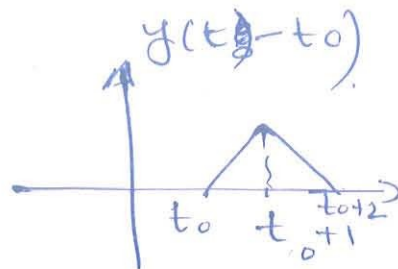 y(t-t0)
t0 t0+1 t0+2